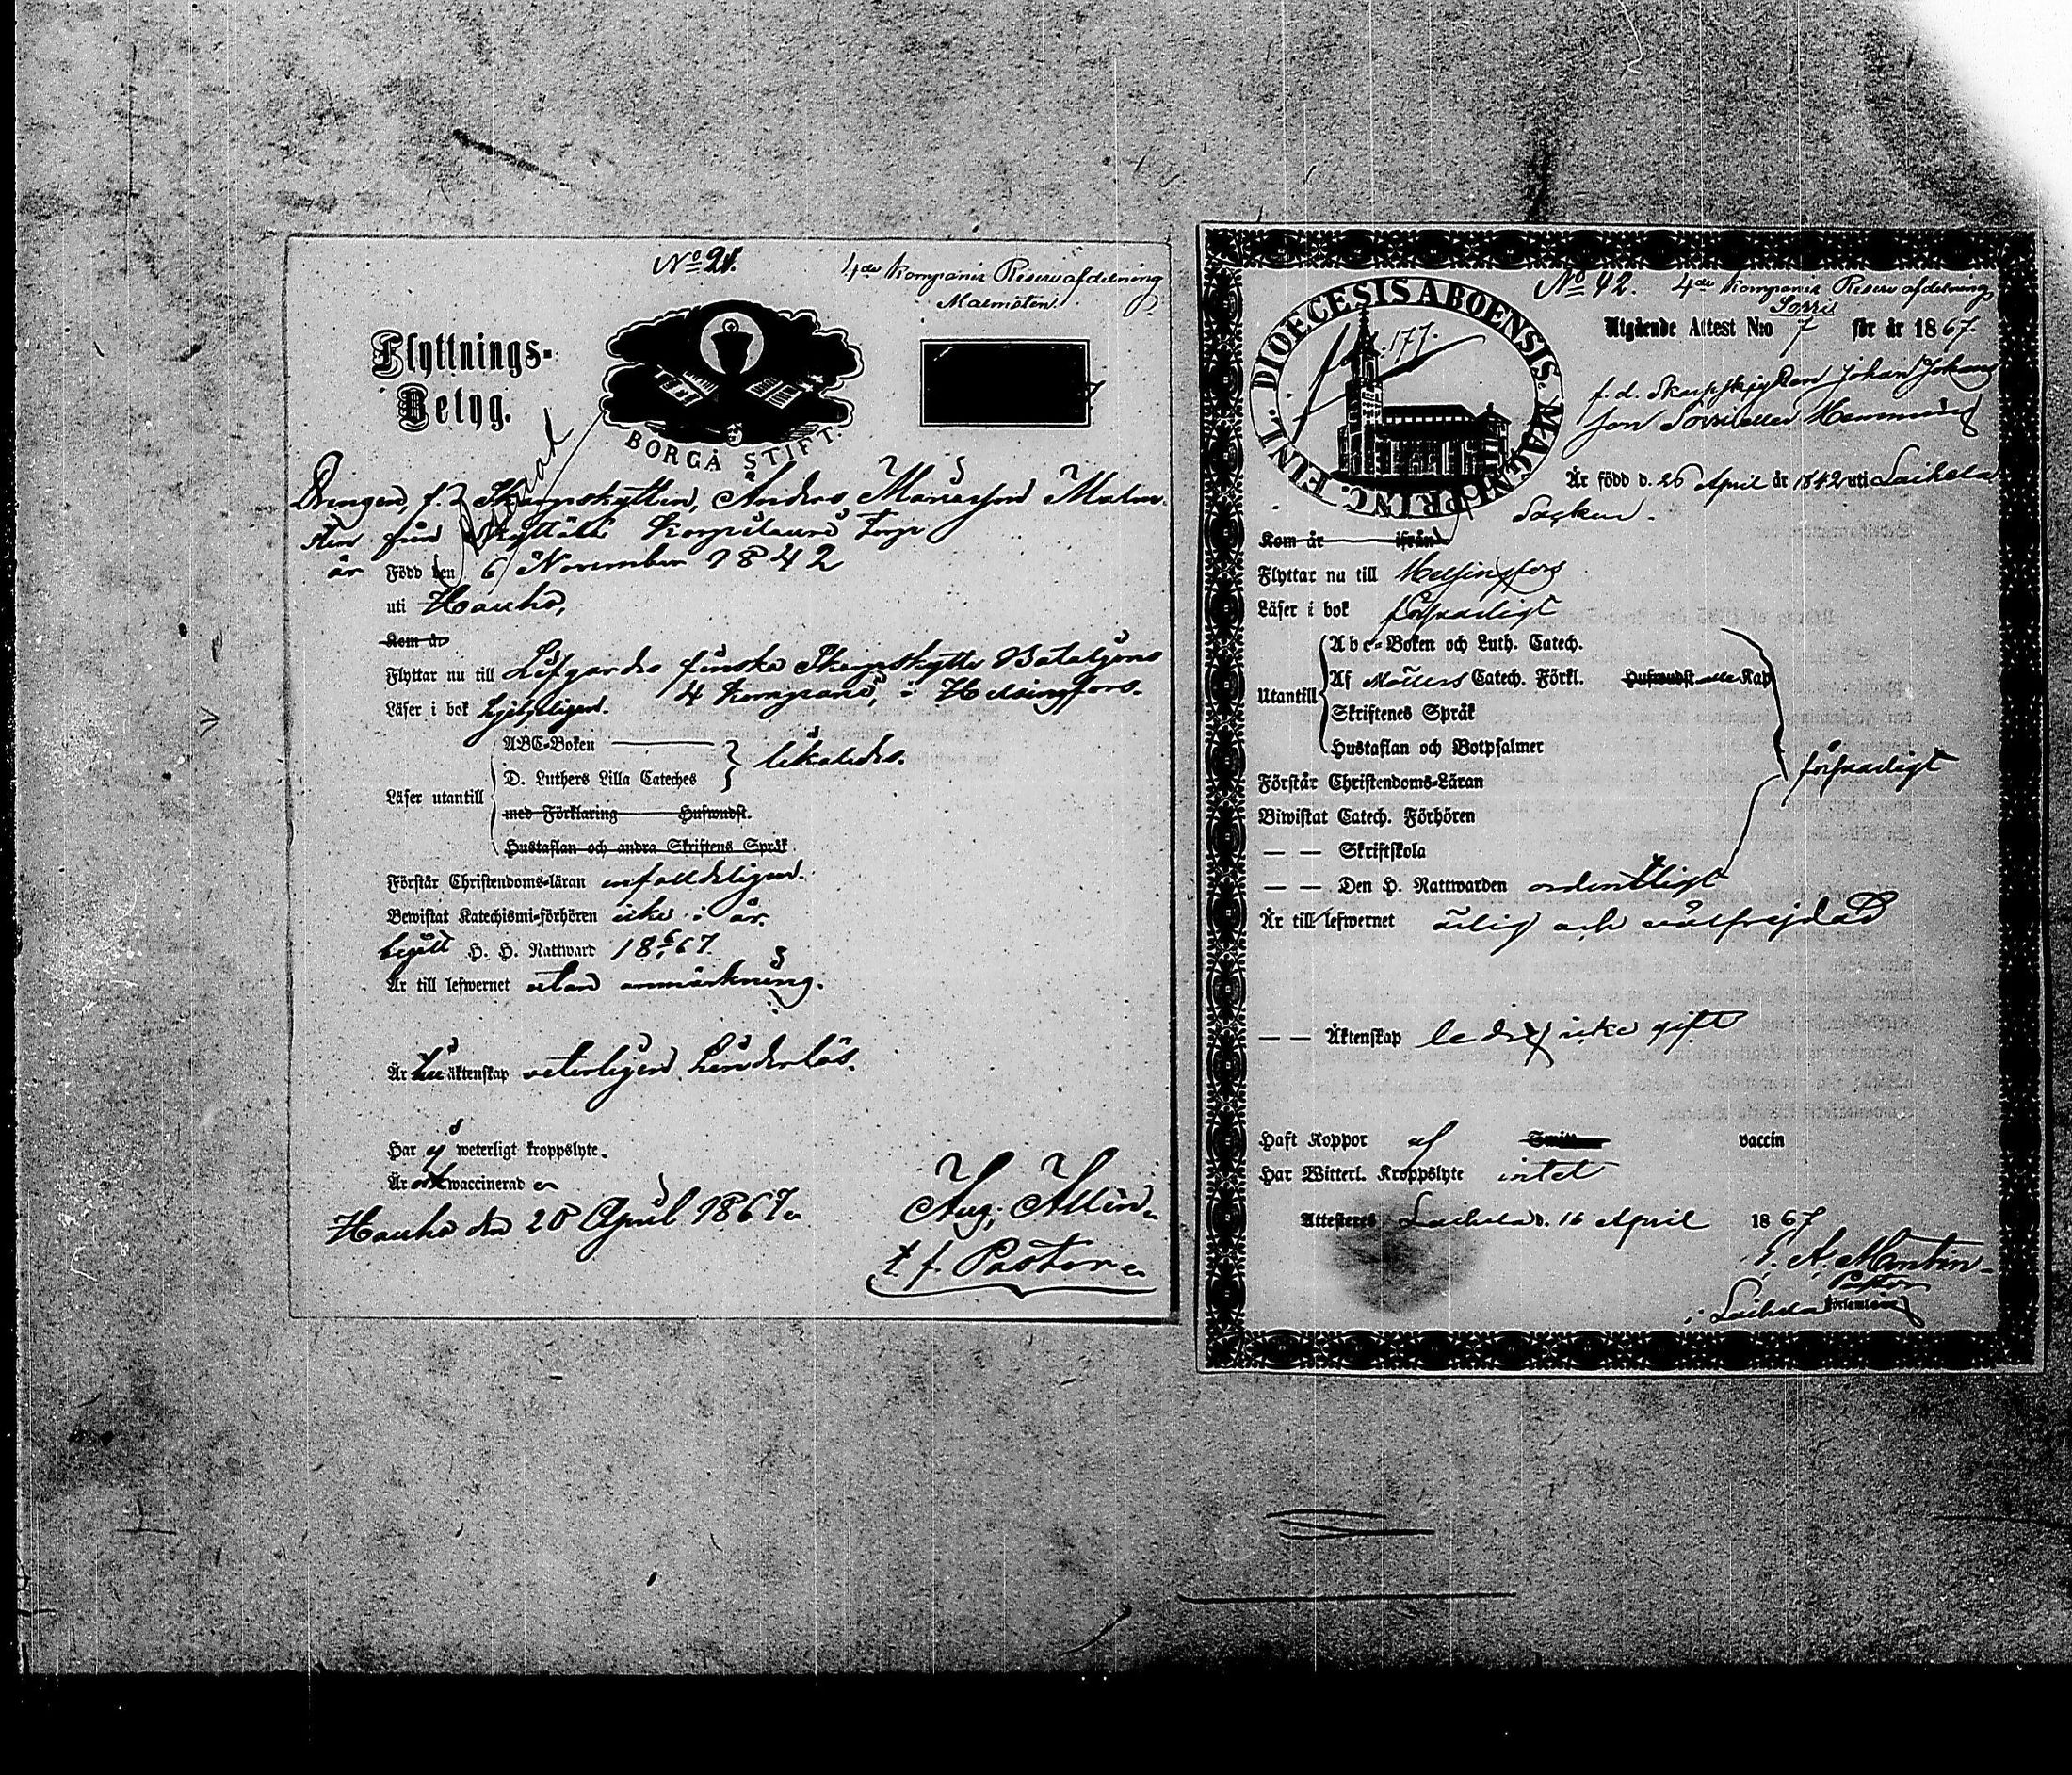 No 21.
4de Kompanie Reservafdelning
Malmsten.
Flyttnings-
Betyg.
BORGÅ STIFT.
Drengen, f.d. Skarpskytten, Anders Mariasson Malm-
sten från Korpilauri Torp
är Född den 6 November 1842
uti Hauho,
Kom år
Flyttar nu till Lifgardes finska Skarpskytte Bataljons
4 Kompani, i Helsingfors.
Läser i bok hjelpeligen.
ABC-Boken
D. Luthers Lilla Cateches } likaledes.
Läser utantill
med Förklaring Hufwudst.
Hustaflan och andra Skriftens Språk
Förstår Christendoms-läran enfaldeligen.
Bewistat Katechismi-förhören icke i år.
begått H. H. Nattward 18 6/6 67.
Är till lefwernet utan anmärkning.
Är till äktenskap veterligen hinderlös.
Har ej weterligt kroppslyte.
Är ock waccinerad
Hauho den 20 April 1867.
Aug. Allén.
t. f. Pastor.
No 42. 4de Kompanie Reservafdelning
Sorri
Utgående Attest N:o 7 för år 1867.
DIOECESIS ABOENSIS. MAGN. PRINC. FINL.
177.
f.d. Skarpskytten Johan Johans
son Sorri eller Hemming
Är född d. 26 April år 1842 uti Laihela
Socken.
Kom år ifrån
Flyttar nu till Helsingfors
Läser i bok försvarligt
Abc-Boken och Luth. Catech.
Af Möllers Catech. Förkl. Hufwudst alla Kap
Utantill
Skriftenes Språk
Hustaflan och Botpsalmer
försvarligt
Förstår Christendoms-Läran
Biwistat Catech. Förhören
— — Skriftskola
— — Den H. Nattwarden ordentligt
Är till lefwernet ärlig och välfrejdad
— — Äktenskap ledig icke gift
Haft Koppor af Smitt vaccin
Har Witterl. Kroppslyte intet
Attesteras Laihela d. 16 April 1867
A. Montin
Pastor
i Laihela